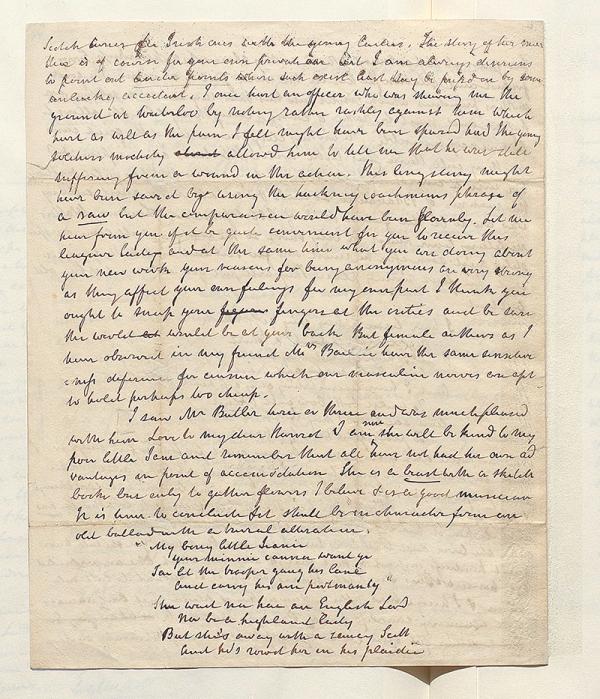 Scotch tunes for Irish ones with the young Ladies. The story of her marr
this is of course for your own private ear but I am always desirous
to point out tender points where such exist lest they be press'd on by some
unlucky accident. I once hurt an officer who was shewing me the
ground at Waterloo by riding rather rashly against him which
hurt as well as the pain I felt might have been spared had the young
soldiers modesty allowed him to tell me that he was still
suffering from a wound in the action. This long story might
have been saved by using the hackney coachmans phrase of
a raw but the comparison would have been Let me
hear from you if it be quite convenient for you to receive this
Lady and at the same time what you are doing about
your new work your reasons for being anonymous are very strong
as they affect your own feelings for my own part I think you
ought to snap your fingers at the critics and be sure
the world would be at your back But female authors as I
have observed in my friend Mrs Baillie have the same sensitive
-ness deference for censure which our masculine nerves are apt
to hold perhaps too cheap.
I saw Mr Butler twice or thrice and was much pleased
with him Love to my dear Harriet I am sure she will be kind to my
poor little Jane and remember that all have not had her own ad
vantages in point of accomodation She is a beast with a sketch
book but only to gather flowers I believe & is a good musician
It is time to conclude & it shall be in character from an
old ballad with a bural alteration.
"My bony little Jeanie
your minnie canna want ye
Sae let the trooper gang his lane
And carry his ain portmanty"
She wad na hae an English Lord
Nor be a highland Lady
But she's away with a Scott
And he's row'd her in his plaidie